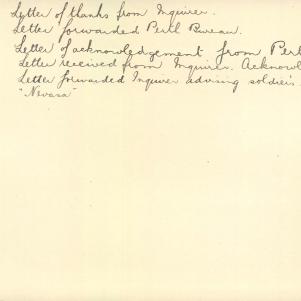 Letter of thanks from Inquirer.
Letter forwarded Perth Bureau.
Letter of acknowledgement from Pert
Letter received from Inquirer. Acknowl
Letter forwarded Inquirer advising soldier's
"Nevasa"